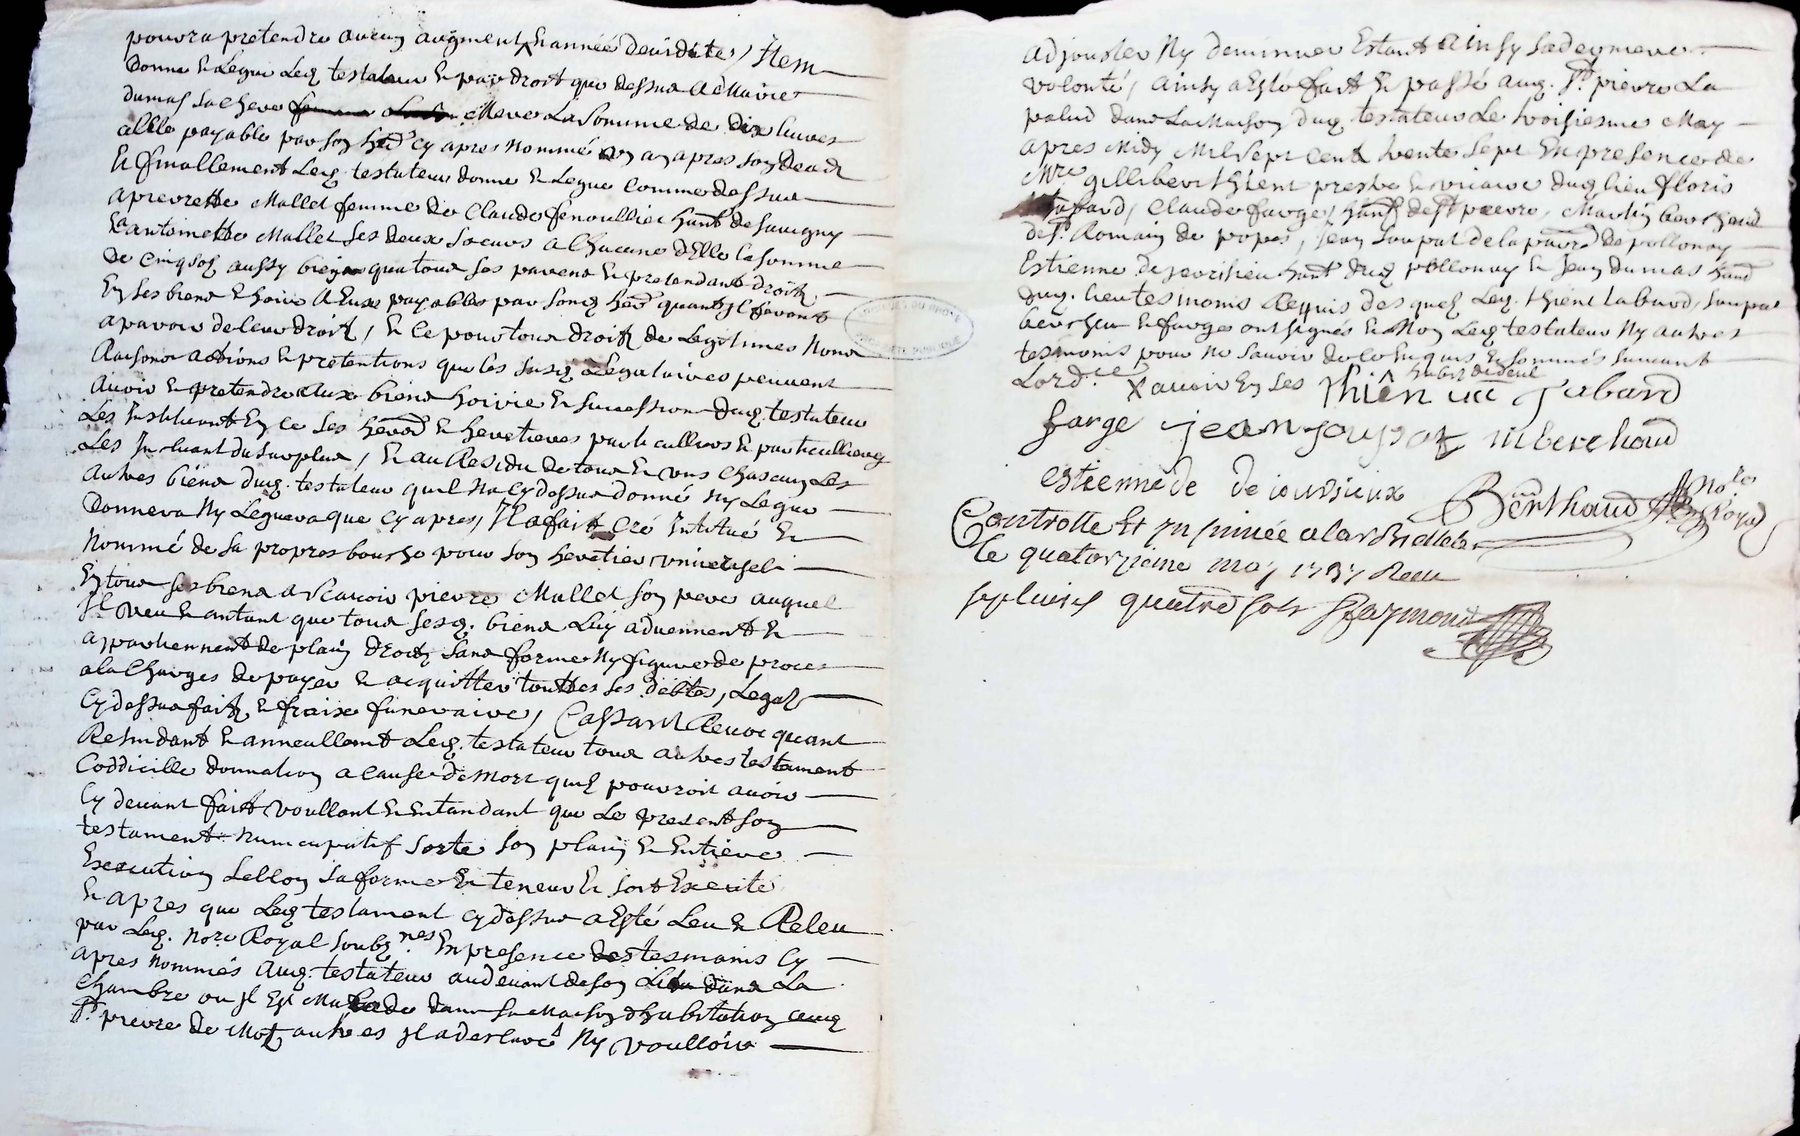 pouvra pretendre aucun augment En année deviduites / Item
Donne & Legue Leq. testateur & par droit que dessus a Marie
Dumas sa chere mere La somme de dix livres
a elle payable par son hed. cy apres nommé un an apres son deced
& finallement Leq. testateur donne & Legue comme dessus
a pierrette Mallet femme de Claude fenoullier habt. de savigny
& a antoinette Mallet ses deux soeurs a Chacune d'Elle la somme
de cinq sols aussy bien qua tous ses parens & pretendants droits
En ses biens & hoirie a Eux payables par sond. hed. quand Il feront
aparoir de leur droits, & ce pour tous droits de Legitimes Noms
Raisons actions & pretentions que les susd. Legataires peuvent
avoir & pretendre aux biens hoirie & succession duq. testateur
Les Instituant En ce ses hered. & heretieres particulliers & particullieres
Les Incluant du surplus, & au Residu de tous & uns chascuns Les
autres biens duq. testateur quil Na cy dessus donné Ny Legué
Donnera Ny Leguera que cy apres, Il a fait Creé Institué &
Nommé de sa propres bouche pour son heretier universel
En tous ses biens a scavoir pierre Mallet son pere auquel
Il veu & antant que tous sesq. biens Luy aduennent &
appartiennent de plain droits sans forme Ny figure de proces
a la Charges de payer & acquitter touttes ses debtes, Legats
Cy dessus faits & fraix funeraire, Cassant Revocquant
Resindant & annullant Leq. testateur tous autres testament
Coddicille donnation a cause de mort quil pouvroit avoir
Cy devant fait voullant & entandant que Le present son
testament nuncupatif sorte son plain & Entiere
Execution Sellon sa forme & teneur & soit Execute
& apres que Leq. testament cy dessus a Esté Leu & Releu
par Leq. Nore. Royal soubz.nes En presence des tesmoins Cy
apres Nommés auq. testateur au devant de son Lit dans La
Chambre ou Il Est Malade dans sa Maison d'habitation auq.
St. pierre de Mots autres Il a desclaré Ny voulloir
adjouster Ny deminuer Estant ainsy sa derniere
volonté, ainsy a Esté fait & passé auq. St. pierre La
palud dans La Maison duq. testateur Le troisiesme May
apres Midy Mil Sept Cent trente Sept En presence de
Mre. gillibert thient prestre & vicaire duq. lieu floris
Tabard, Claude farge, habts. de St. pierre, Martin berchoud
de St. Romain de popes, Jean soupat de la paroisse de pollonay
Estienne de jeursieu habt. duq. pollonay & Jean Dumas habt.
duq. lieu tesmoins Requis desquels Leq. thient tabard, soupat
berchu & farge ont signés & Non Leq. testateur Ny autres
tesmoins pour ne savoir de ce Enquis & sommés suivant
Lord.ce
thien vic Tabard
farge jean soupat M berchoud
estienne de de joursieux Berthaud Nore. Royal
Controllé Et Insinuée a larbresle
le quatorzieme may 1737 Receu
sept livres quatre sols Raymond